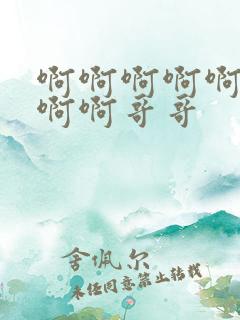 啊啊啊啊啊
啊啊哥哥
舍佩尔
未经同意禁止转载